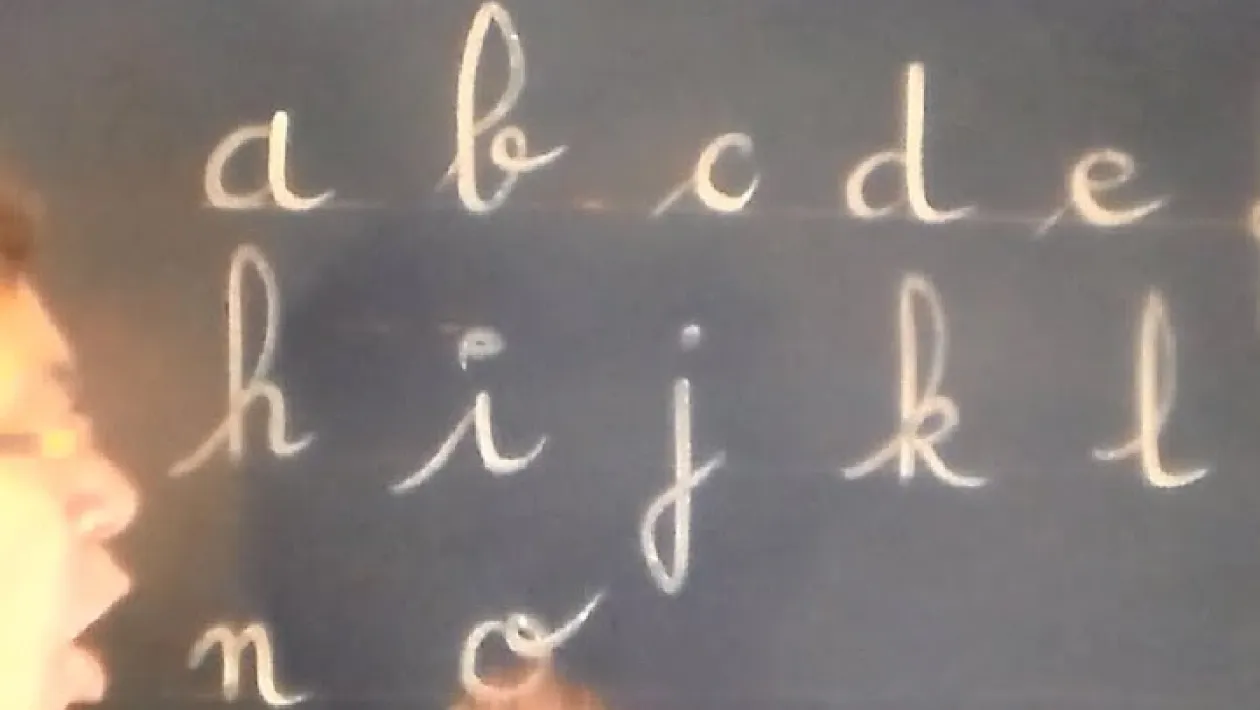 a b c d e
h i j k l
n o